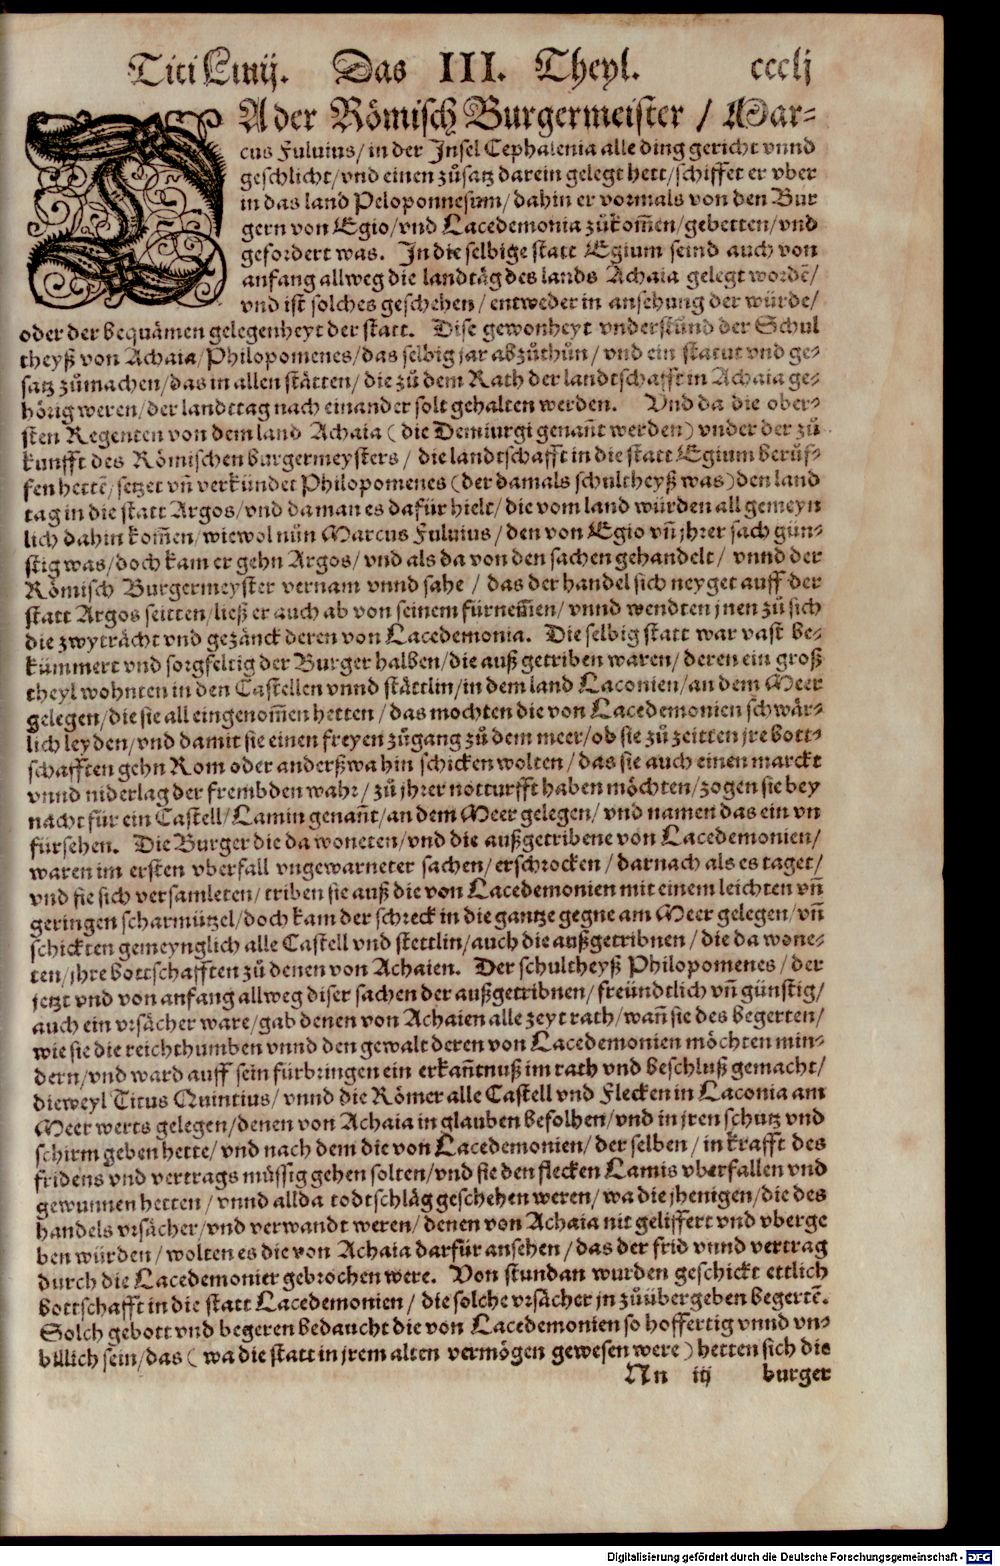 Titi Liuij. Das III. Theyl. ccclj
DA der Römisch Burgermeister / Mar-
cus Fuluius / in der Insel Cephalenia alle ding gericht vnnd
geschlicht / vnd einen zůsatz darein gelegt hett / schiffet er vber
in das land Peloponnesum / dahin er vormals von den Bur
gern von Egio / vnd Lacedemonia zůkom̃en / gebetten / vnd
gefordert was. In die selbige statt Egium seind auch von
anfang allweg die landtäg des lands Achaia gelegt wordẽ /
vnd ist solches geschehen / entweder in ansehung der würde /
oder der bequämen gelegenheyt der statt. Dise gewonheyt vnderstůnd der Schul
theyß von Achaia / Philopomenes / das selbig jar abzůthůn / vnd ein statut vnd ge-
satz zůmachen / das in allen stätten / die zů dem Rath der landtschafft in Achaia ge-
hörig weren / der landttag nach einander solt gehalten werden. Vnd da die ober-
sten Regenten von dem land Achaia ( die Demiurgi genañt werden ) vnder der zů
kunfft des Römischen burgermeysters / die landtschafft in die statt Egium berüf-
fen hettẽ / setzet vñ verkündet Philopomenes ( der damals schultheyß was ) den land
tag in die statt Argos / vnd da man es dafür hielt / die vom land würden all gemeyn
lich dahin kom̃en / wiewol nůn Marcus Fuluius / den von Egio vñ jhrer sach gün-
stig was / doch kam er gehn Argos / vnd als da von den sachen gehandelt / vnnd der
Römisch Burgermeyster vernam vnnd sahe / das der handel sich neyget auff der
statt Argos seitten / ließ er auch ab von seinem fürnem̃en / vnnd wendten jnen zů sich
die zwyträcht vnd gezänck deren von Lacedemonia. Die selbig statt war vast be-
kümmert vnd sorgfeltig der Burger halben / die auß getriben waren / deren ein groß
theyl wohnten in den Castellen vnnd stättlin / in dem land Laconien / an dem Meer
gelegen / die sie all eingenom̃en hetten / das mochten die von Lacedemonien schwär-
lich leyden / vnd damit sie einen freyen zůgang zů dem meer / ob sie zů zeitten jre bott-
schafften gehn Rom oder anderßwa hin schicken wolten / das sie auch einen marckt
vnnd niderlag der frembden wahr / zů jhrer notturfft haben möchten / zogen sie bey
nacht für ein Castell / Lamin genañt / an dem Meer gelegen / vnd namen das ein vn
fürsehen. Die Burger die da woneten / vnd die außgetribene von Lacedemonien /
waren im ersten vberfall vngewarneter sachen / erschrocken / darnach als es taget /
vnd sie sich versamleten / triben sie auß die von Lacedemonien mit einem leichten vñ
geringen scharmützel / doch kam der schreck in die gantze gegne am Meer gelegen / vñ
schickten gemeynglich alle Castell vnd stettlin / auch die außgetribnen / die da wone-
ten / jhre bottschafften zů denen von Achaien. Der schultheyß Philopomenes / der
jetzt vnd von anfang allweg diser sachen der außgetribnen / freündtlich vñ günstig /
auch ein vrsächer ware / gab denen von Achaien alle zeyt rath / wañ sie des begerten /
wie sie die reichthumben vnnd den gewalt deren von Lacedemonien möchten min-
dern / vnd ward auff sein fürbringen ein erkañtnuß im rath vnd beschluß gemacht /
dieweyl Titus Quintius / vnnd die Römer alle Castell vnd Flecken in Laconia am
Meer werts gelegen / denen von Achaia in glauben befolhen / vnd in jren schutz vnd
schirm geben hette / vnd nach dem die von Lacedemonien / der selben / in krafft des
fridens vnd vertrags müssig gehen solten / vnd sie den flecken Lamis vberfallen vnd
gewunnen hetten / vnnd allda todtschläg geschehen weren / wa die jhenigen / die des
handels vrsächer / vnd verwandt weren / denen von Achaia nit geliffert vnd vberge
ben würden / wolten es die von Achaia darfür ansehen / das der frid vnnd vertrag
durch die Lacedemonier gebrochen were. Von stundan wurden geschickt ettlich
bottschafft in die statt Lacedemonien / die solche vrsächer jn zůübergeben begertẽ.
Solch gebott vnd begeren bedaucht die von Lacedemonien so hoffertig vnnd vn-
billich sein / das ( wa die statt in jrem alten vermögen gewesen were ) hetten sich die
Nn iij burger
Digitalisierung gefördert durch die Deutsche Forschungsgemeinschaft - DFG